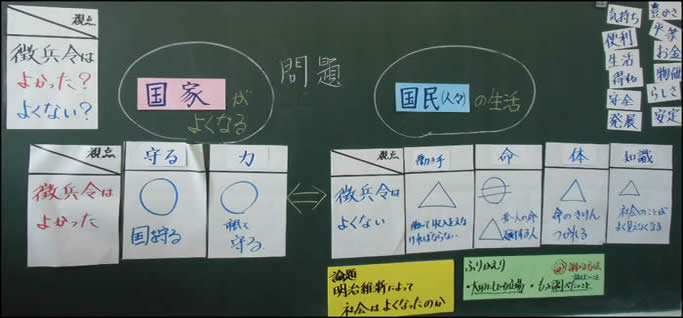 視点
徴兵令は
よかった?
よくない?
国家が
よくなる
問題
国民(人々)の生活
気持ち
便利
生活
得
安全
発展
豊かさ
平等
お金
物価
らしさ
安定
視点
守る
力
徴兵令は
よかった
国を守る
戦って
守る
視点
働き手
命
体
知識
徴兵令は
よくない
働いて収入を支えな
ければならない
命のきけん
つかれる
社会のことが
よく見えなくなる
論題
明治維新によって
社会はよくなったのか
ふりかえり